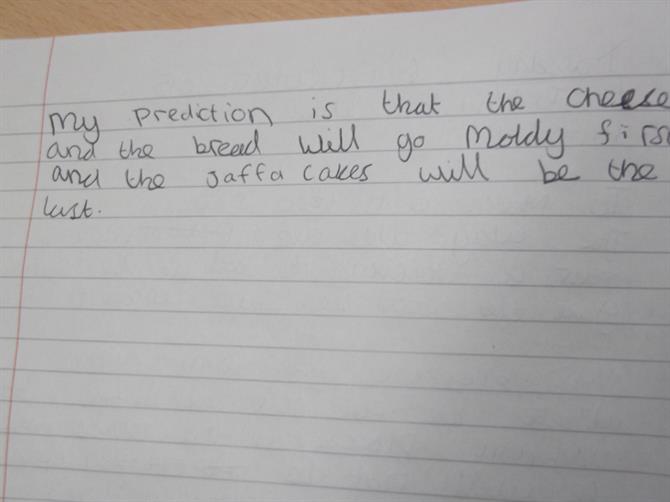 My prediction is that the cheese
and the bread will go moldy firs
and the Jaffa cakes will be the
last.